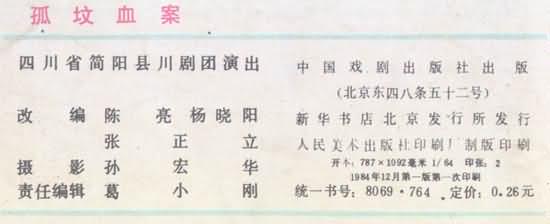 孤坟血案
四川省简阳县川剧团演出
改编 陈亮 杨晓阳
张正立
摄影 孙宏华
责任编辑 葛小刚
中国戏剧出版社出版
(北京东四八条五十二号)
新华书店北京发行所发行
人民美术出版社印刷厂制版印刷
开本: 787×1092毫米 1/64 印张: 2
1984年12月第一版第一次印刷
统一书号: 8069·764 定价: 0.26元